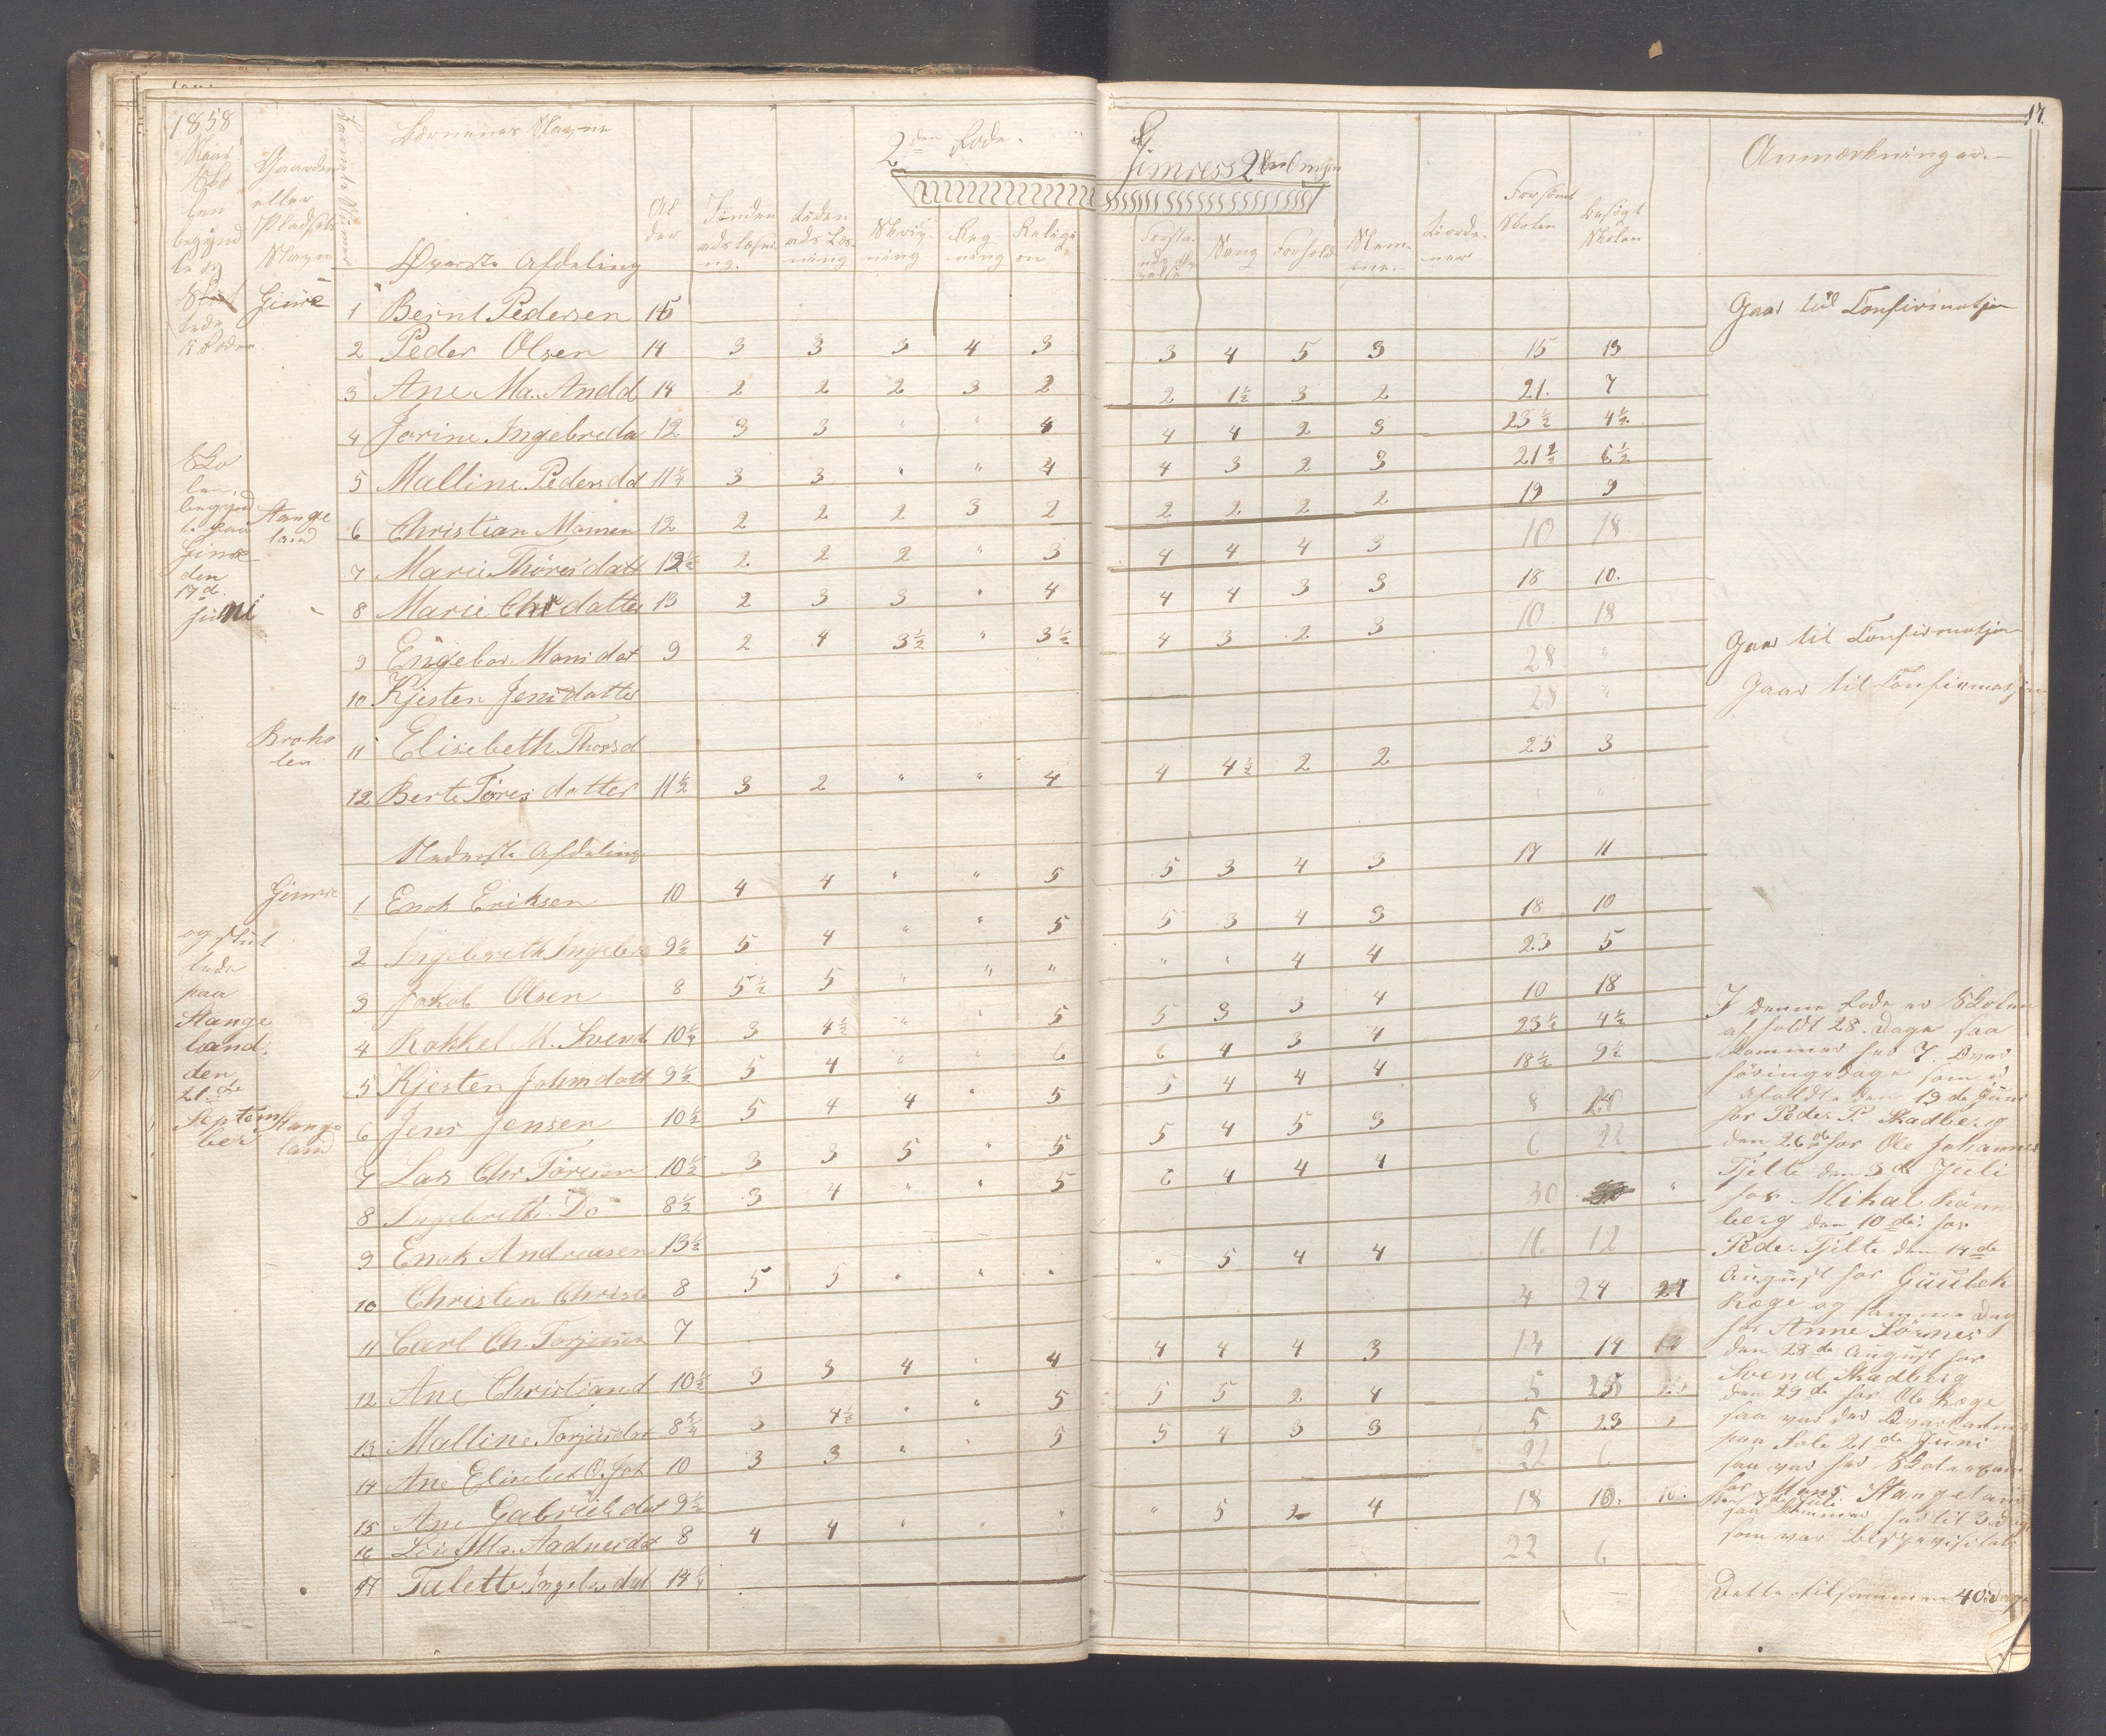 1858
17.
Børnenes Navne
2den Rode.
Gimre
Anmærkninger.
Naar Skolen begyndte og sluttede
Gaardens eller Pladsens Navn
Alder
Indenadslæsning
Skrivning
Regning
Religion
Sang
Forhold
Stemme
Forsømt Skolen
Besøgt Skolen
Øverste Afdeling
Gimre 1 Bernt Pedersen 15 Gaar til Confirmatjon
2 Peder Olsen 14 3 3 3 4 3 3 4 5 3 15 13
3 Ane Ma. Andd 14 2 2 2 3 2 2 1½ 3 2 21. 7
4 Jorine Ingebreda 12 3 3 " " 4 4 4 2 3 23½ 4½
5 Malline Pedersdd 11½ 3 3 " " 4 4 3 2 3 21½ 6½
Stangeland 6 Christian Monsen 12 2 2 2 3 2 2 2 2 2 19 9
7 Marie Thoresdatt 12½ 2 2 2 " 3 4 4 4 3 10 18
8 Marie Chrdatter 13 2 3 3 " 4 4 4 3 3 18 10.
9 Engebor Monsdat 9 2 4 3½ " 3½ 4 3 2 3 10 18
10 Kjesten Jensdatter 28 " Gaar til Confirmatjon
11 Elisebeth Thorsd 28 " Gaar til Confirmatjon
12 Berte Toresdatter 11½ 3 2 " " 4 4 4½ 2 2 25 3
Skolen begyndte paa Gimre den 17d. juni
Nederste Afdeling
Gimre 1 Enok Eriksen 10 4 4 " " 5 5 3 4 3 17 11
2 Ingebreth Ingebre 9½ 5 4 " " 5 5 3 4 3 18 10
3 Jakob Olsen 8 5½ 5 " " " " " 4 4 23 5
4 Rakkel M. Svend 10¼ 3 4½ " " 5 5 3 3 4 10 18
5 Kjesten Johndatt 9½ 5 4 " " 6 6 4 3 4 23½ 4½
6 Jens Jensen 10½ 5 4 4 " 5 5 4 4 4 18½ 9½
Stangeland 7 Lars Chr. Toresen 10½ 3 3 5 " 5 5 4 5 3 8 20
8 Ingebreth Do 8½ 3 4 " " 5 6 4 4 4 6 22
9 Enok Andreasen 13½ 30
10 Christen Christe 8 5 5 " " " " 5 4 4 16 12
11 Carl Ch. Torjusen 7 4 24
12 Ane Christiand 10½ 3 3 4 " 4 4 4 4 3 14 14
13 Malline Torjusdat 8¾ 3 4½ " " 5 5 5 2 4 25
14 Ane Elisebet O. Jot 10 3 3 " " 5 5 4 3 3 5 23
15 Ane Gabrielsdat 9½ 22 6
16 Ma. Aadnesdat 8 4 4 " " " " 5 2 4 18 10.
17 Talette Ingebresdat 14¼ 22 6
og sluttede paa Stangeland. den 21de September
I denne Rode er Skolen
afholdt 28. Dage saa
kommer her 7. Over
høringsdage som er
afholdte den 13de Juni
for Peder P. Skadberg
den 26de for Ole Johannes
Tjelte den 3de Juli
for Mikal
berg den 10de for
Peder Tjelte den 14de
August for Guulek
Ræge og samme Dag
for Anne Sørnes
den 28de August for
Svend Skadberg
den 29de for Ole Ræge
saa var der
paa Sole 21de Juni
saa var her
for Mons Stangeland
saa kommer hertil 3 dage
som var Bispevisitats
Dette tilsammen 40 Dage